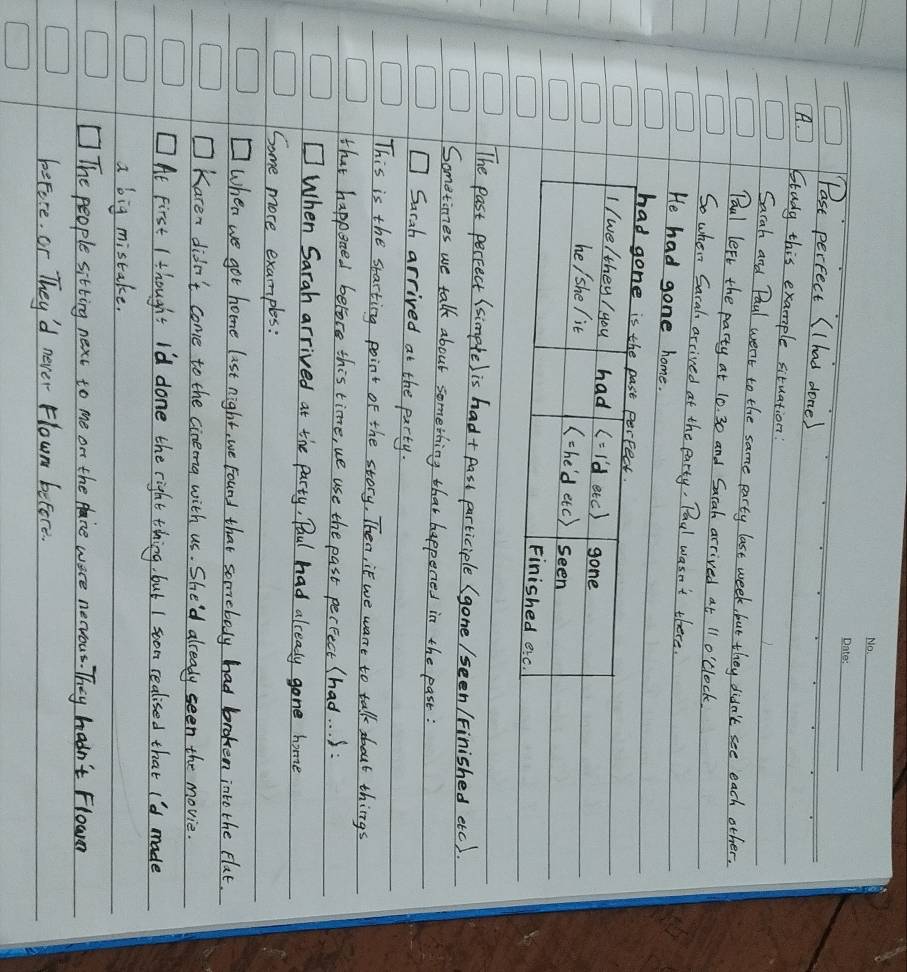 No.
Date:
Past perfect (I had done)
A. Study this example situation:
Sarah and Paul went to the same party last week, but they didn't see each other.
Paul left the party at 10.30 and Sarah arrived at 11 o'clock.
So when Sarah arrived at the party, Paul wasn't there.
He had gone home.
had gone is the past perfect.
I/we/they/you had (=I'd etc) gone
he/she/it (=he'd etc) seen
finished etc.
The past perfect (simple) is had + past participle (gone/seen/finished etc).
Sometimes we talk about something that happened in the past:
□ Sarah arrived at the party.
This is the starting point of the story. Then, if we want to talk about things
that happened before this time, we use the past perfect (had ...):
□ When Sarah arrived at the party, Paul had already gone home
Some more examples:
□ When we got home last night, we found that somebody had broken into the flat.
□ Karen didn't come to the cinema with us. She'd already seen the movie.
□ At first I thought I'd done the right thing, but I soon realised that I'd made
a big mistake.
□ The people sitting next to me on the were nervous. They hadn't flown
before. or They'd never flown before.